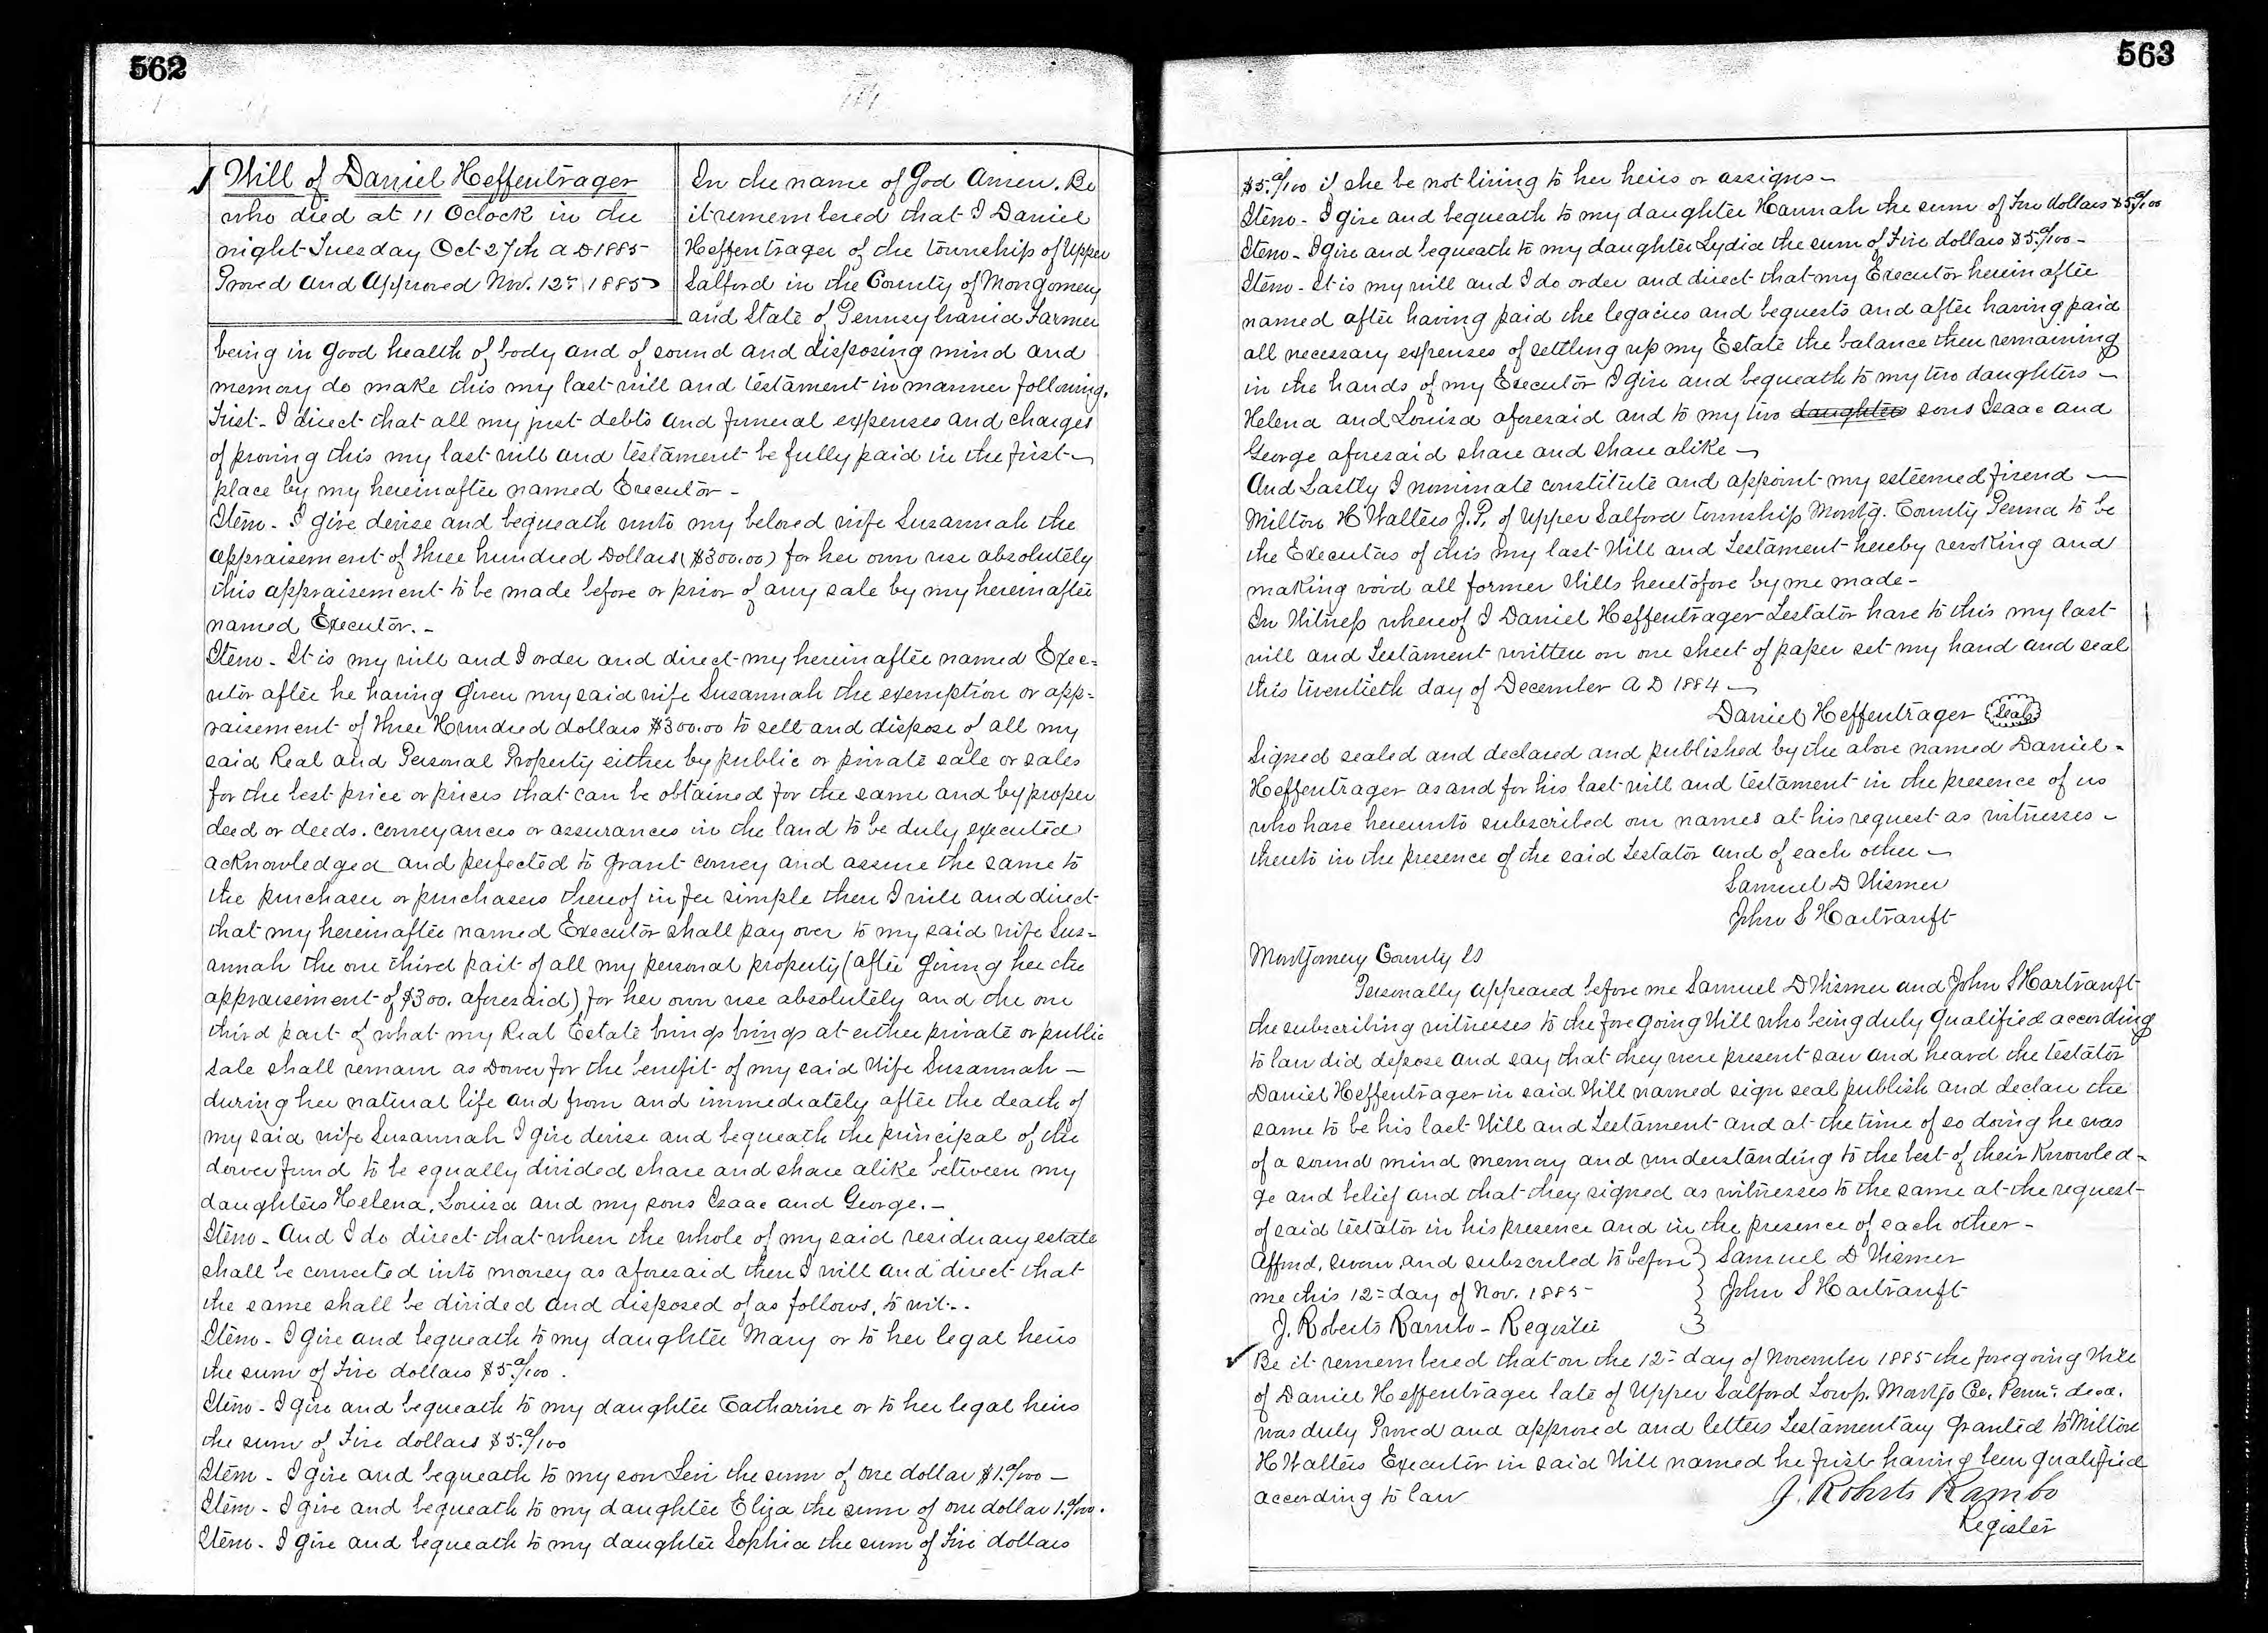 562
Will of Daniel Heffentrager
who died at 11 Oclock in the
night Tuesday Oct 27th A D 1885
Proved and Approved Nov. 12th 1885
In the name of God Amen. Be
it remembered that I Daniel
Heffentrager of the township of Upper
Salford in the County of Montgomery
and State of Pennsylvania Farmer
being in good health of body and of sound and disposing mind and
memory do make this my last will and testament in manner following.
First - I direct that all my just debts and funeral expenses and charges
of proving this my last will and testament be fully paid in the first
place by my hereinafter named Executor -
Item - I give devise and bequeath unto my beloved wife Susannah the
appraisement of three hundred Dollars ($300.00) for her own use absolutely
this appraisement to be made before or prior of any sale by my hereinafter
named Executor. -
Item - It is my will and I order and direct my hereinafter named Exec=
utor after he having given my said wife Susannah the exemption or app=
raisement of three Hundred dollars $300.00 to sell and dispose of all my
said Real and Personal Property either by public or private sale or sales
for the best price or prices that can be obtained for the same and by proper
deed or deeds. conveyances or assurances in the land to be duly executed
acknowledged and perfected to grant convey and assure the same to
the purchaser or purchasers thereof in fee simple then I will and direct
that my hereinafter named Executor shall pay over to my said wife Sus=
annah the one third part of all my personal property (after giving her the
appraisement of $300. aforesaid) for her own use absolutely and the one
third part of what my Real Estate brings brings at either private or public
sale shall remain as Dower for the benefit of my said Wife Susannah -
during her natural life and from and immediately after the death of
my said wife Susannah I give devise and bequeath the principal of the
dower fund to be equally divided share and share alike between my
daughters Helena, Louisa and my sons Isaac and George. -
Item - And I do direct that when the whole of my said residuary estate
shall be converted into money as aforesaid then I will and direct that
the same shall be divided and disposed of as follows, to wit -.
Item - I give and bequeath to my daughter Mary or to her legal heirs
the sum of Five dollars $5.0/100.
Item - I give and bequeath to my daughter Catharine or to her legal heirs
the sum of Five dollars $5.0/100
Item - I give and bequeath to my son Levi the sum of one dollar $1.0/100 -
Item - I give and bequeath to my daughter Eliza the sum of one dollar 1.0/100.
Item - I give and bequeath to my daughter Sophia the sum of Five dollars
563
$5.0/100 if she be not living to her heirs or assigns -
Item - I give and bequeath to my daughter Hannah the sum of Five dollars $5.0/100
Item - I give and bequeath to my daughter Lydia the sum of Five dollars $5.0/100 -
Item - It is my will and I do order and direct that my Executor herein after
named after having paid the legacies and bequests and after having paid
all necessary expenses of settling up my Estate the balance then remaining
in the hands of my Executor I give and bequeath to my two daughters -
Helena and Louisa aforesaid and to my two daughters sons Isaac and
George aforesaid share and share alike -
And Lastly I nominate constitute and appoint my esteemed friend -
Milton H Walters J.P. of Upper Salford township Montg. County Penna to be
the Executors of this my last Will and Testament hereby revoking and
making void all former Wills heretofore by me made -
In Witness whereof I Daniel Heffentrager Testator have to this my last
will and Testament written on one sheet of paper set my hand and seal
this twentieth day of December A D 1884 -
Daniel Heffentrager Seal
Signed sealed and declared and published by the above named Daniel -
Heffentrager as and for his last will and testament in the presence of us
who have hereunto subscribed our names at his request as witnesses -
thereto in the presence of the said Testator and of each other -
Samuel D Wismer
John S Hartranft
Montgomery County SS
Personally appeared before me Samuel D Wismer and John S Hartranft
the subscribing witnesses to the foregoing Will who being duly qualified according
to law did depose and say that they were present saw and heard the testator
Daniel Heffentrager in said Will named sign seal publish and declare the
same to be his last Will and Testament and at the time of so doing he was
of a sound mind memory and understanding to the best of their Knowled-
ge and belief and that they signed as witnesses to the same at the request
of said testator in his presence and in the presence of each other -
Affmd. sworn and subscribed to before
me this 12= day of Nov. 1885
J. Roberts Rambo - Register
Samuel D Wismer
John S Hartranft
Be it remembered that on the 12= day of November 1885 the foregoing Will
of Daniel Heffentrager late of Upper Salford Towp. Montgo Co. Penna. decd.
was duly Proved and approved and letters Testamentary granted to Milton
H Walters Executor in said Will named he first having been qualified
according to law
J. Roberts Rambo
Register